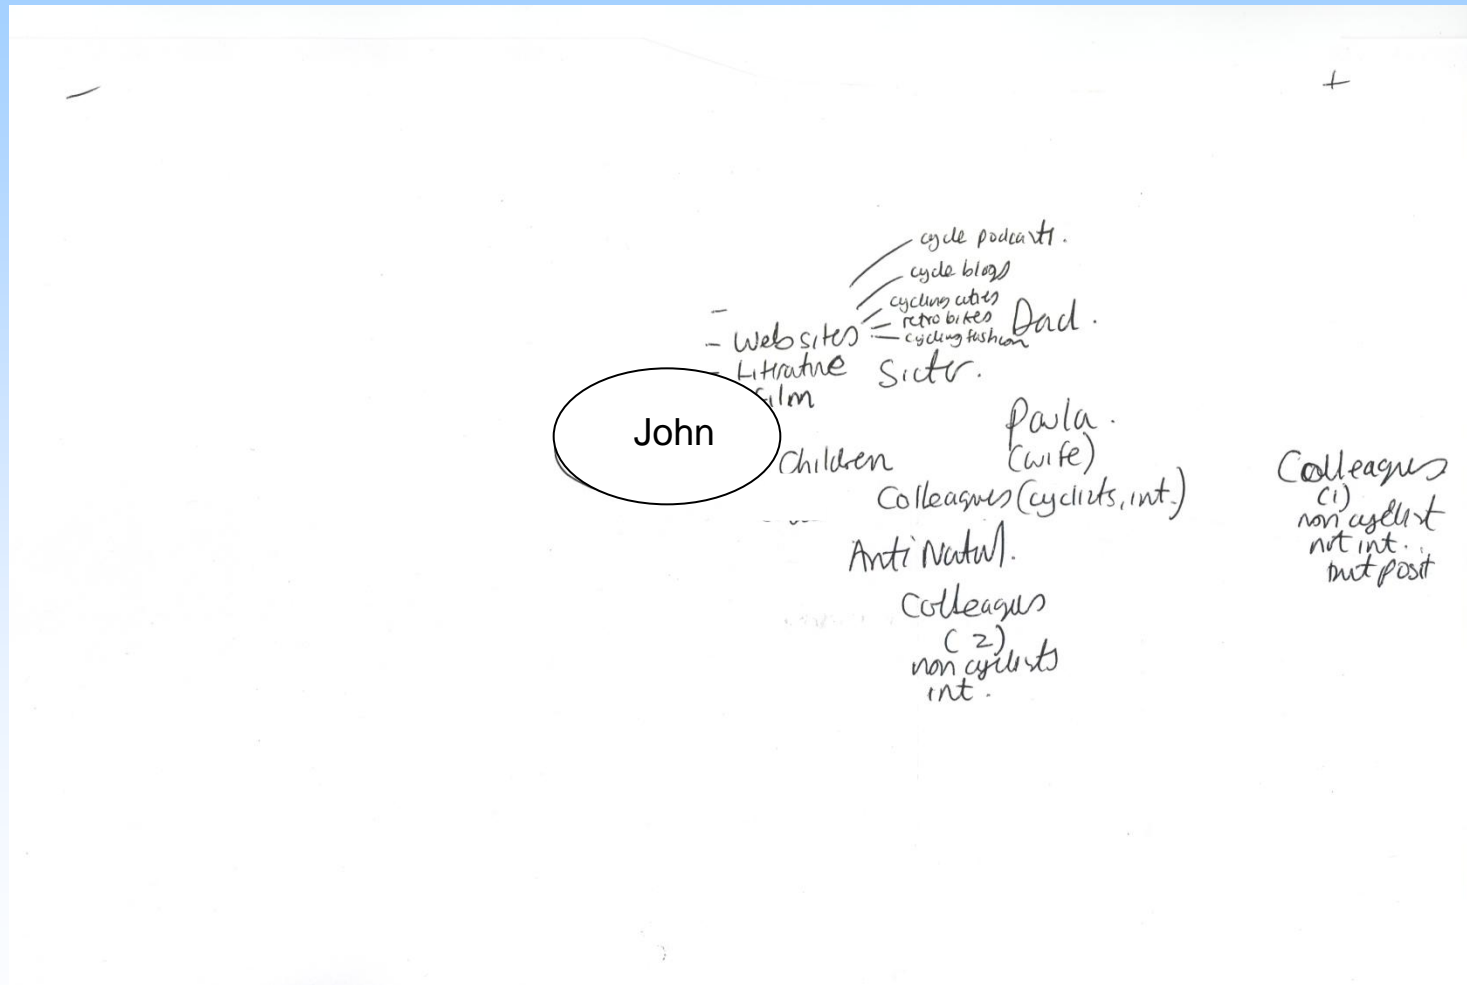 — +
cycle podcasts.
cycle blogs
cycling cuties
retro bikes
cycling fashion
Dad.
- Websites
- Literature
film
Sister.
John
Paula.
(wife)
Children
Colleagues (cyclists, int.)
Colleagues
(1)
non cyclist
not int.
but posit
Anti Natal.
Colleagues
(2)
non cyclists
int.